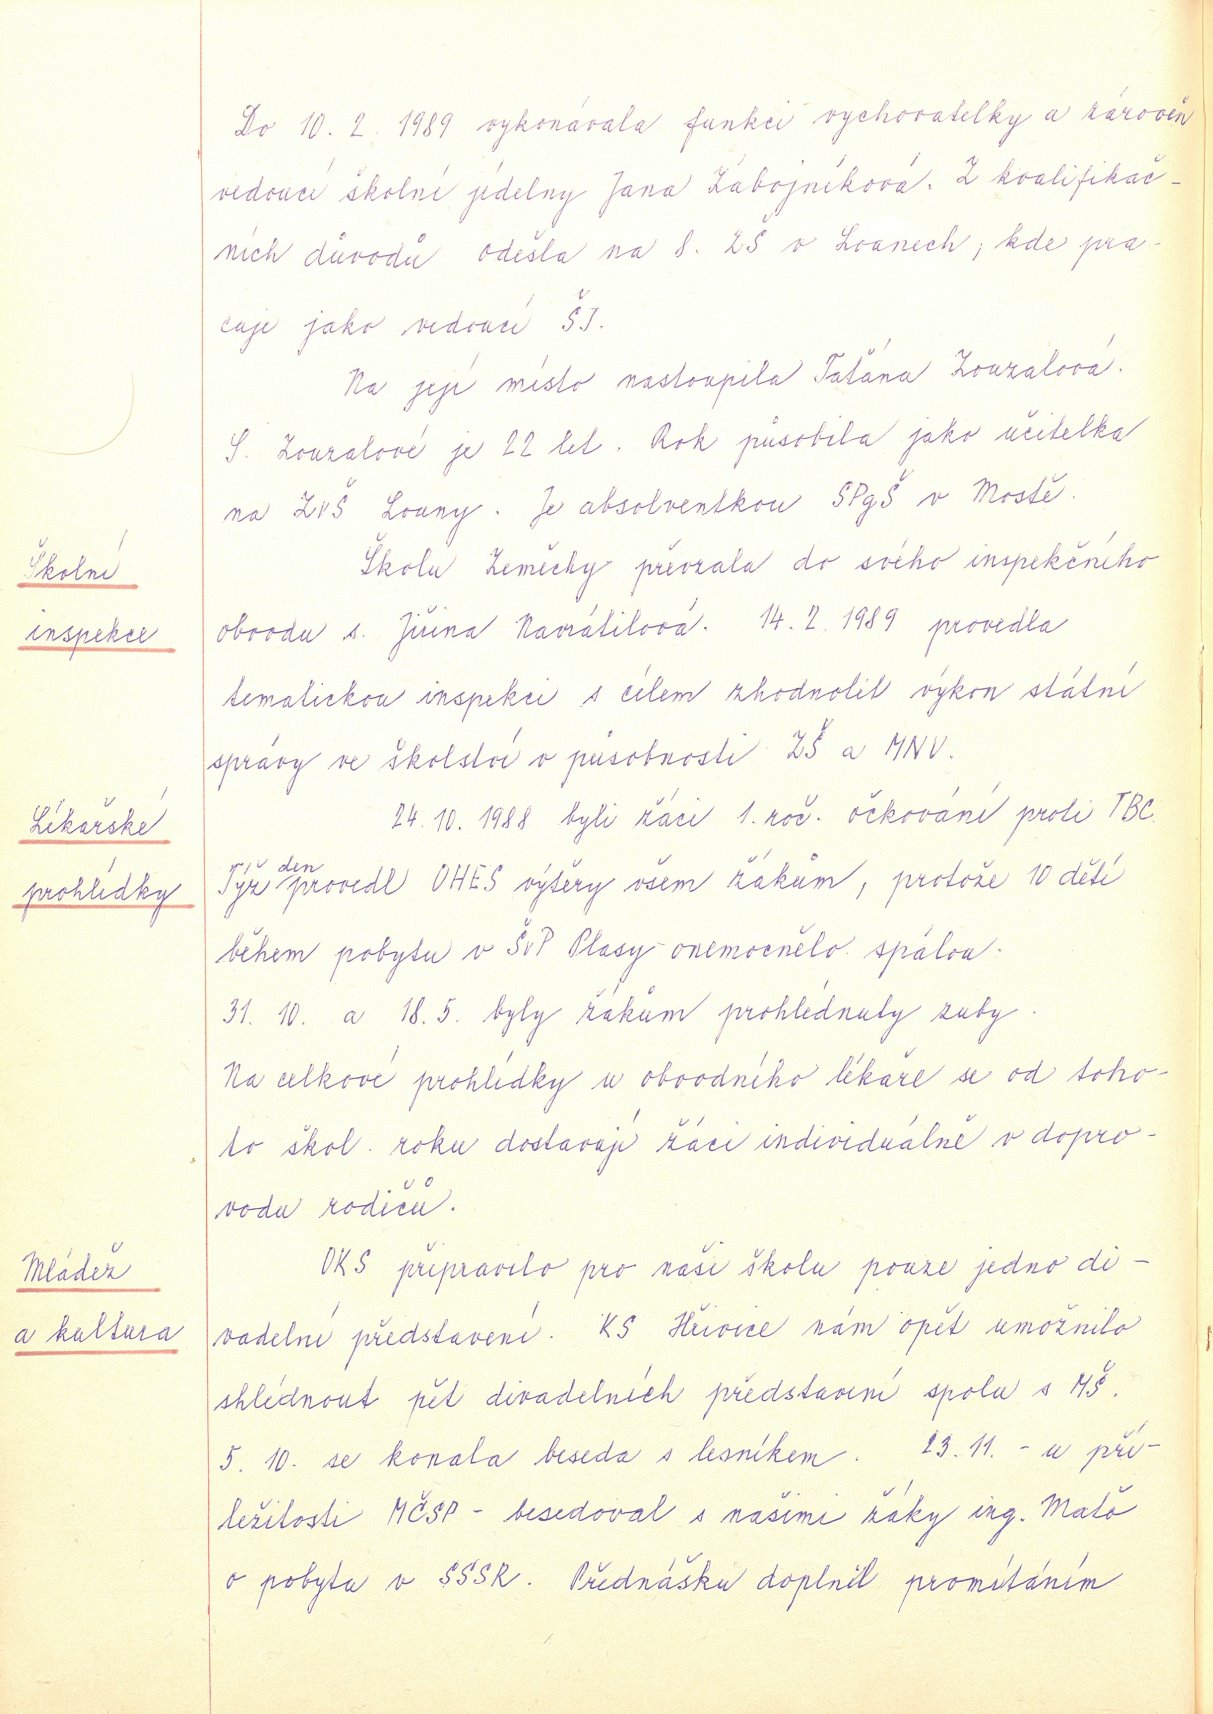 Do 10. 2. 1989 vykonávala funkci vychovatelky a zároveň
vedoucí školní jídelny Jana Zábojníková. Z kvalifikač-
ních důvodů odešla na 8. ZŠ v Lounech, kde pra-
cuje jako vedoucí ŠJ.
Na její místo nastoupila Taťána Zouzalová.
S. Zouzalové je 22 let. Rok působila jako učitelka
na ZvŠ Louny. Je absolventkou SPgŠ v Mostě.
Školní
Školu Zeměchy převzala do svého inspekčního
inspekce
obvodu s. Jiřina Navrátilová. 14. 2. 1989 provedla
tematickou inspekci s cílem zhodnotit výkon státní
správy ve školství v působnosti ZŠ a MNV.
Lékařské
24. 10. 1988 byli žáci 1. roč. očkováni proti TBC.
prohlídky
Týž den provedl OHES výtěry všem žákům, protože 10 dětí
během pobytu v ŠvP Plasy onemocnělo spálou.
31. 10. a 18. 5. byly žákům prohlédnuty zuby.
Na celkové prohlídky u obvodního lékaře se od toho-
to škol. roku dostavují žáci individuálně v dopro-
vodu rodičů.
Mládež
OKS připravilo pro naši školu pouze jedno di-
a kultura
vadelní představení. KS Hřivice nám opět umožnilo
shlédnout pět divadelních představení spolu s MŠ.
5. 10. se konala beseda s lesníkem. 23. 11. - u pří-
ležitosti MČSP - besedoval s našimi žáky ing. Matō
o pobytu v SSSR. Přednášku doplnil promítáním